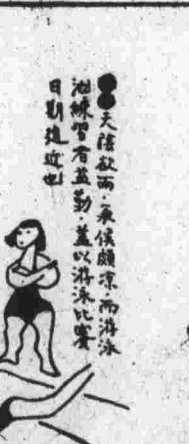 ●●天陰欲雨,氣候頗凉,而游泳
池練習者益勤,蓋以游泳比賽
日期趨近也